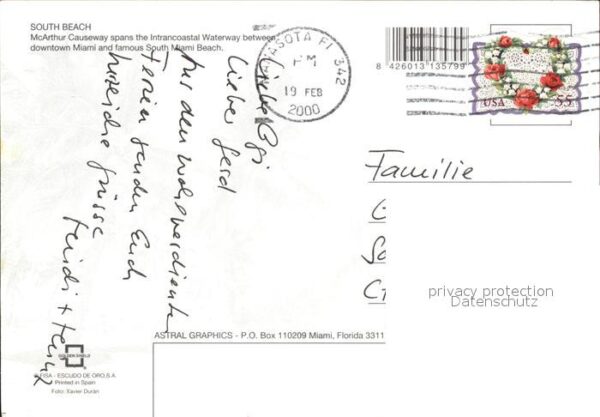 SOUTH BEACH
McArthur Causeway spans the Intrancoastal Waterway between
downtown Miami and famous South Miami Beach.
ASOTA FL 342
PM
19 FEB
2000
8 426013 135799
USA
55
Lieber Gerd
Aus den wohlverdienten
Ferien senden Euch
herzliche Grüsse
Heidi + Heinz
Familie
G
S
C
privacy protection
Datenschutz
ASTRAL GRAPHICS - P.O. Box 110209 Miami, Florida 3311
GOLDEN SHIELD
FISA - ESCUDO DE ORO, S.A.
Printed in Spain
Foto: Xavier Durán